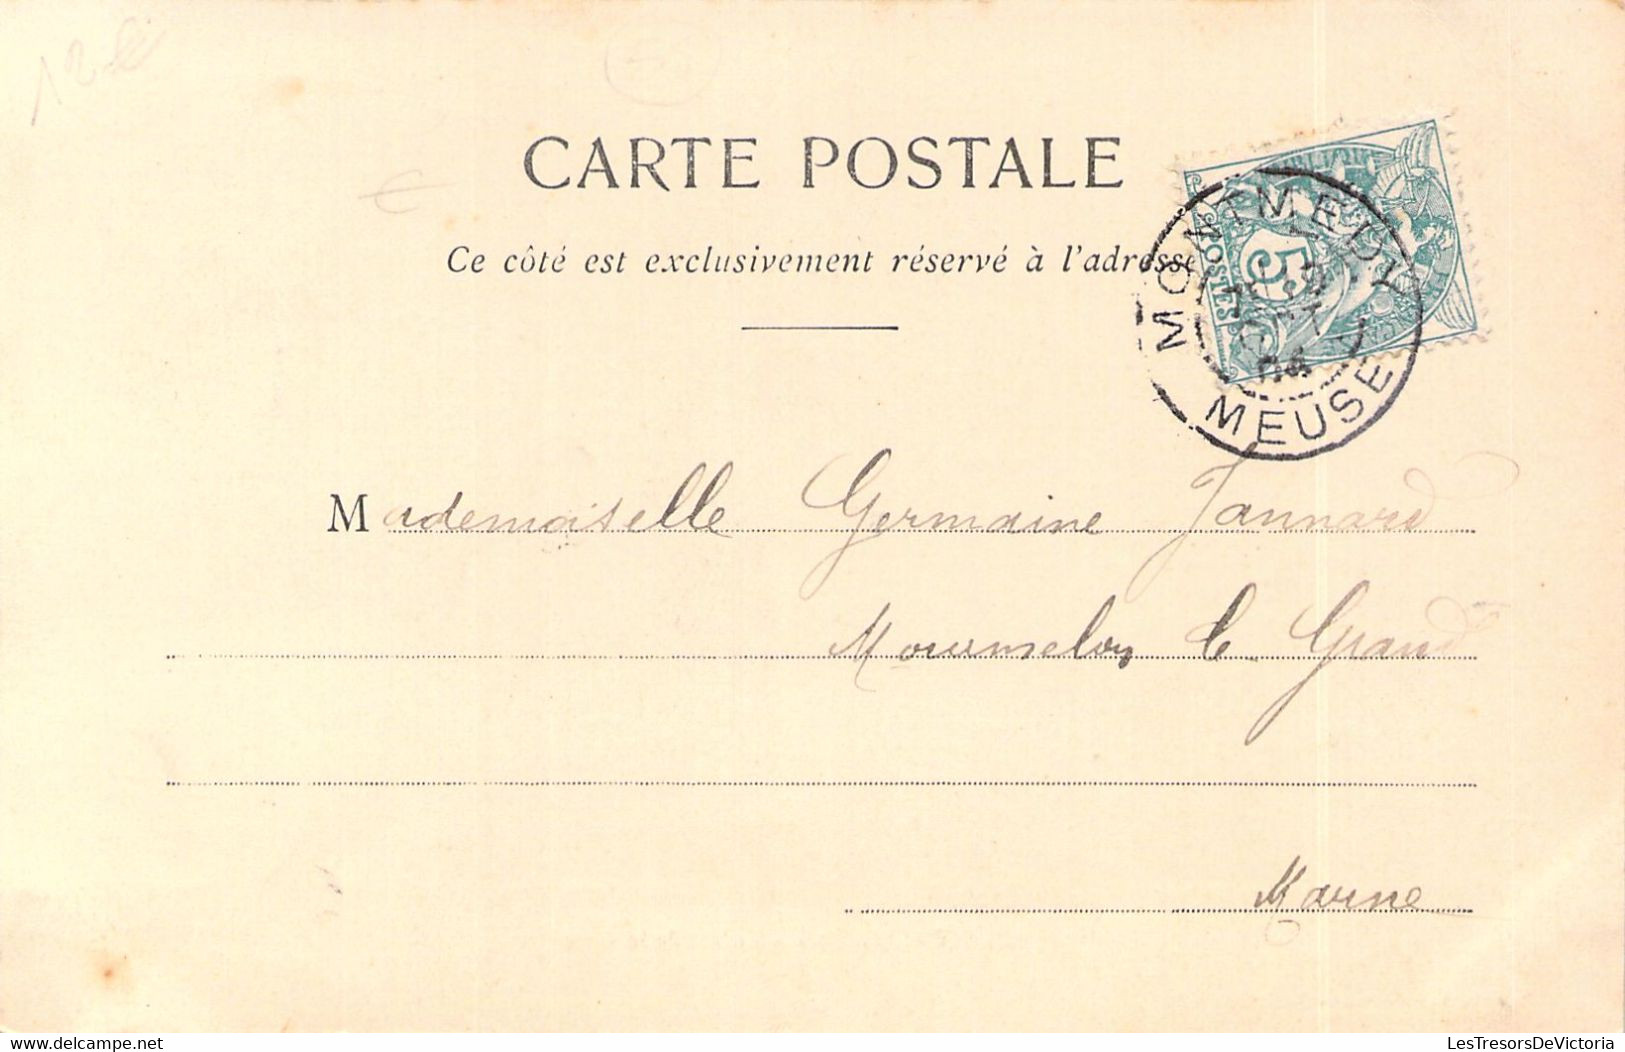 CARTE POSTALE
Ce côté est exclusivement réservé à l'adresse
POSTES
5
MONTMEDY
04
MEUSE
Mademoiselle Germaine Jannard
Mourmelon le Grand
Marne
LesTresorsDeVictoria